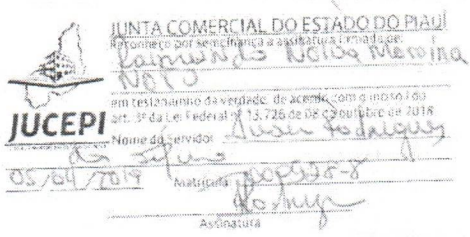 JUNTA COMERCIAL DO ESTADO DO PIAUÍ
Reconheço por semelhança a assinatura firmada de:
Raimundo Neiva Moreira
Neto
em testemunho da verdade, de acordo com o inciso I do
art. 3º da Lei Federal nº 13.726 de 08 de outubro de 2018
JUCEPI
Nome do Servidor: Juan Rodrigues
da Silva
05/04/2019 Matrícula:
Assinatura